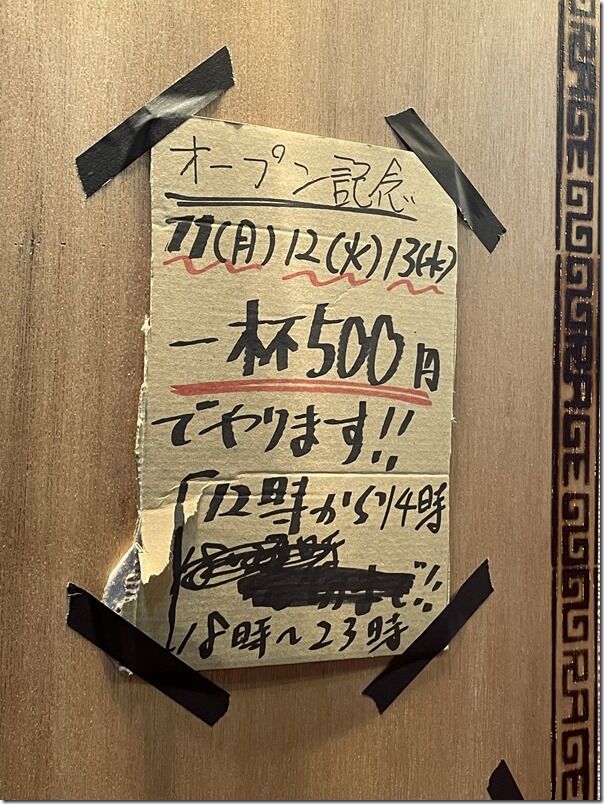 オープン記念
11(月)12(火)13(水)
一杯500円
でやります!!
12時から14時
18時〜23時
RAGE
RAGE
RAGE
RAGE